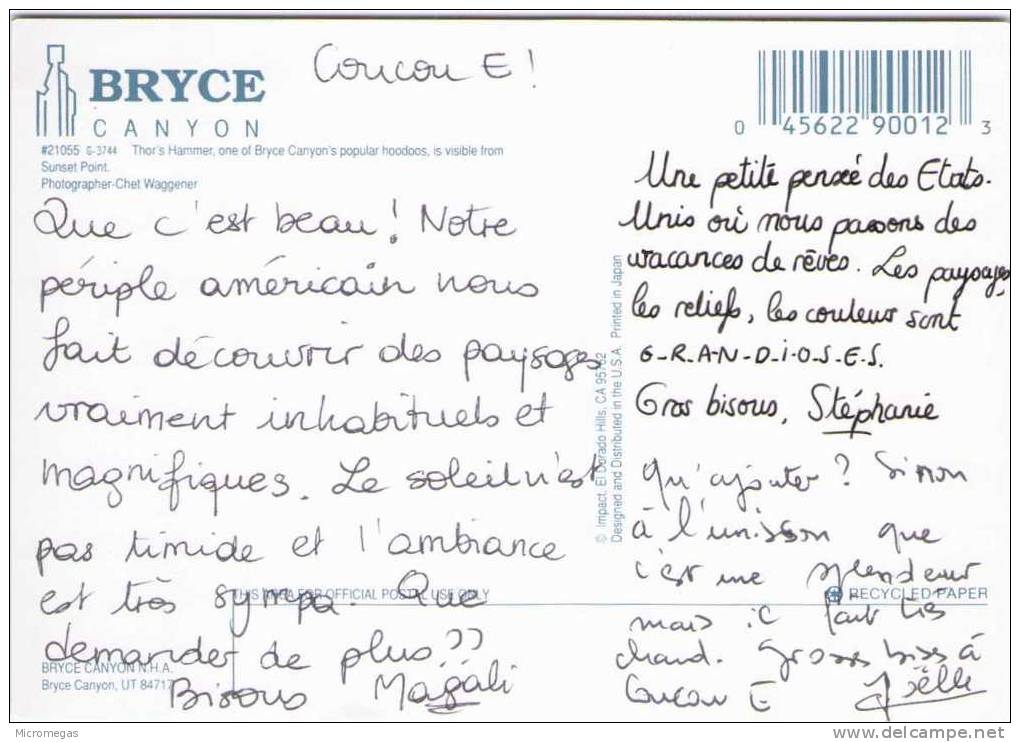 Coucou E!
BRYCE
CANYON
#21055 G-3744 Thor's Hammer, one of Bryce Canyon's popular hoodoos, is visible from
Sunset Point.
Photographer-Chet Waggener
0 45622 90012 3
Que c'est beau! Notre
périple américain nous
fait découvrir des paysages
vraiment inhabituels et
magnifiques. Le soleil n'est
pas timide et l'ambiance
est très sympa. Que
demander de plus??
Bisous Magali
© Impact, El Dorado Hills, CA 95762
Designed and Distributed in the U.S.A. Printed in Japan
Une petite pensée des Etats-
Unis où nous passons des
vacances de rêves. Les paysages,
les reliefs, les couleurs sont
G-R-A-N-D-i-O-S-E-S.
Gros bisous, Stéphanie
Qu'ajouter? Sinon
à l'unisson que
c'est une splendeur
mais il fait très
chaud. Grosses bises à
Coucou E Joëlle
THIS AREA FOR OFFICIAL POSTAL USE ONLY
RECYCLED PAPER
BRYCE CANYON N.H.A.
Bryce Canyon, UT 84717
Micromegas
delcampe.net